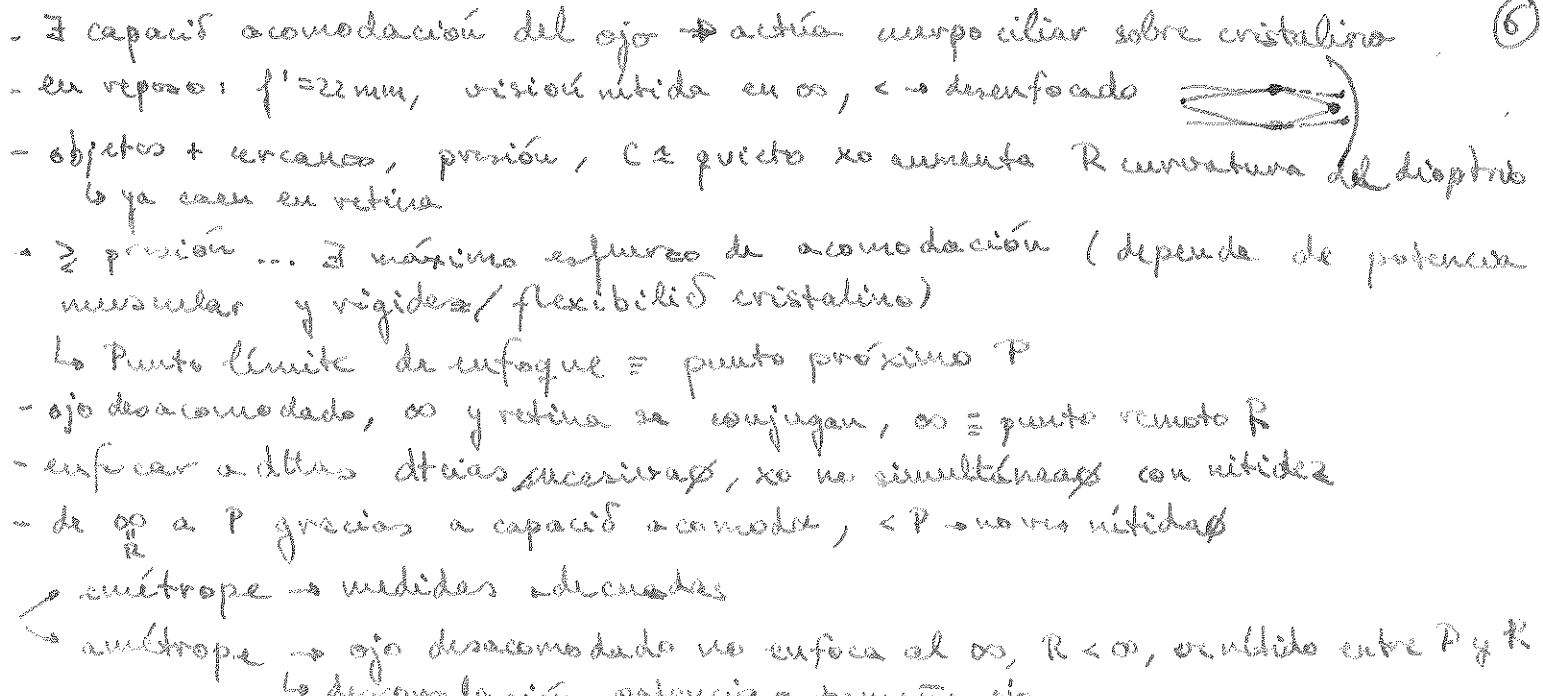 - ∃ capacið acomodación del ojo → actúa cuerpo ciliar sobre cristalino ⑥
- en reposo: f'=22mm, visión nítida en ∞, < → desenfocado
- objetos + cercanos, presión, C ≈ quieto xo aumenta R curvatura del dioptrio
↳ ya caen en retina
- ≥ presión ... ∃ máximo esfuerzo de acomodación (depende de potencia
muscular y rigidez/flexibilið cristalino)
↳ Punto límite de enfoque ≡ punto próximo P
- ojo desacomodado, ∞ y retina se conjugan, ∞ ≡ punto remoto R
- enfocar a dttas dtcias sucesiva∅, xo no simultánea∅ con nitidez
- de ∞ a P gracias a capacið acomodx, < P → no ves nítida∅
=
R
→ emétrope → medidas adecuadas
→ amétrope → ojo desacomodado no enfoca al ∞, R < ∞, ve nítido entre P y R